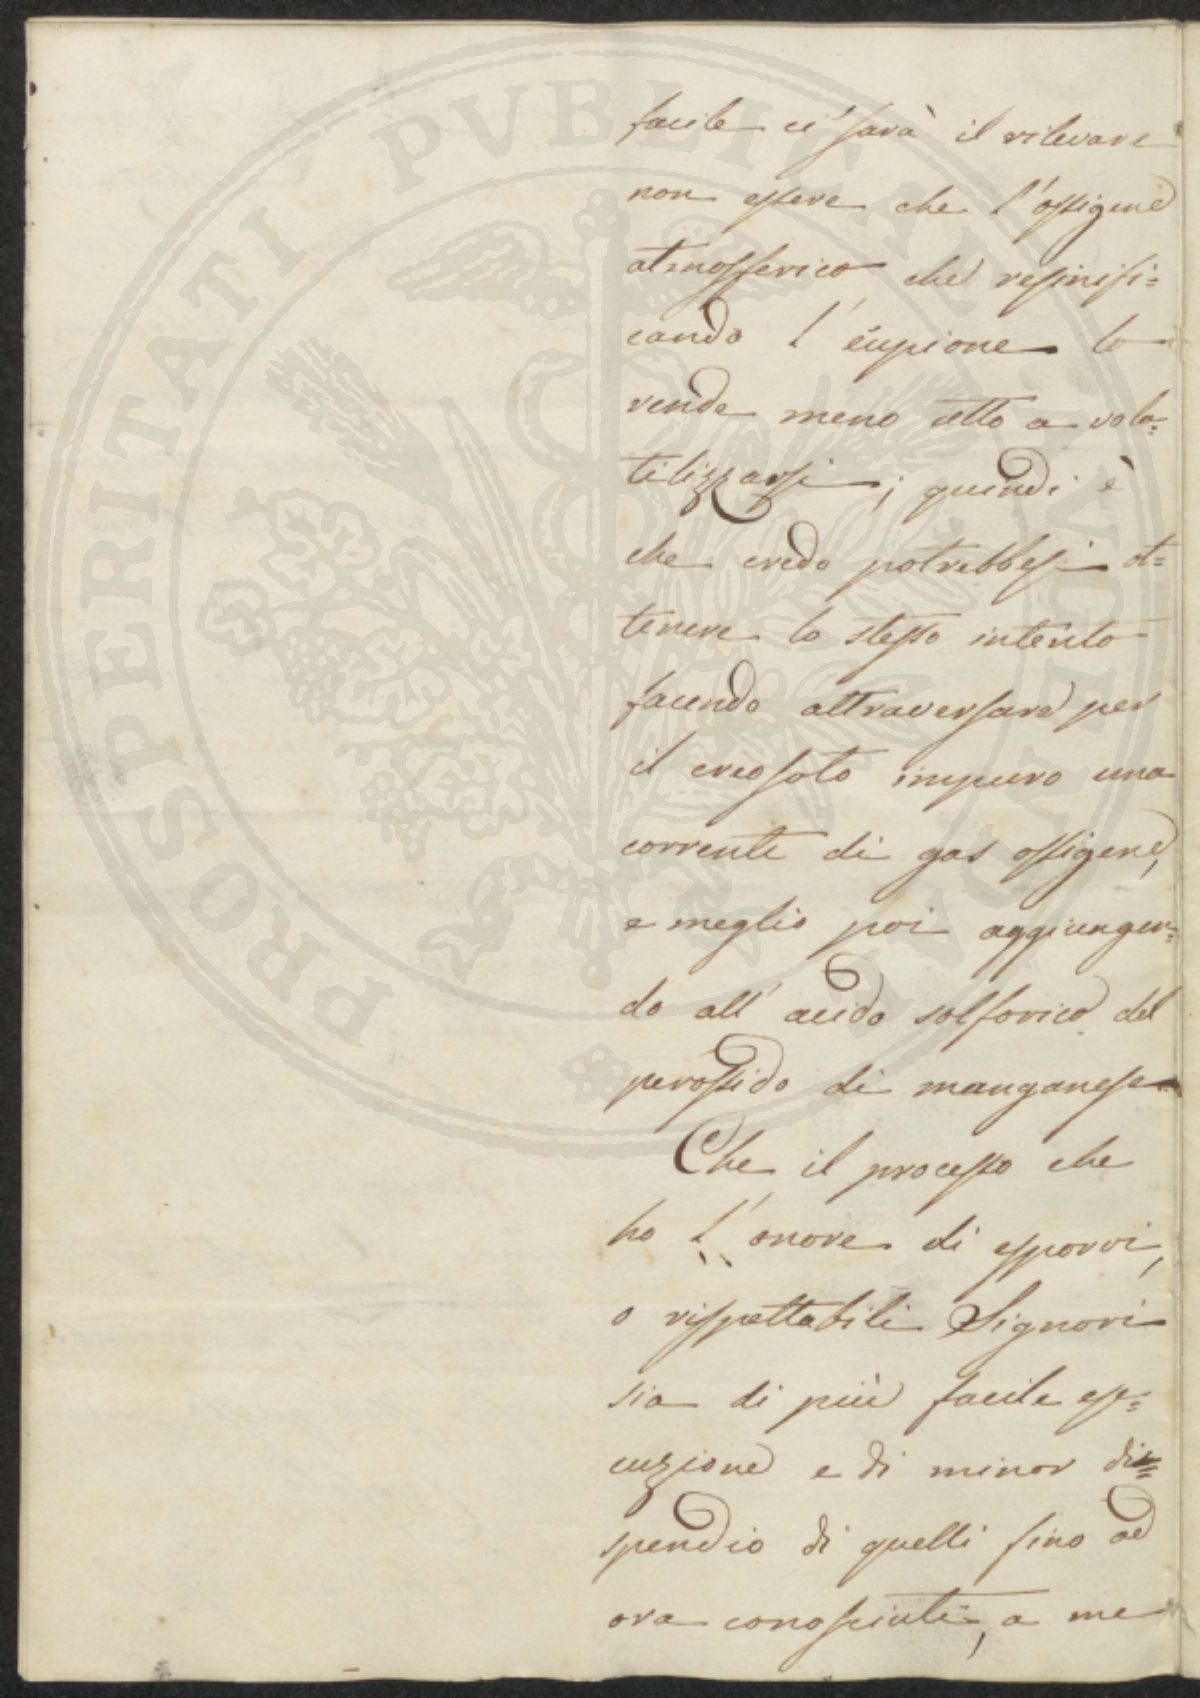 facile ci sarà il rilevare
non essere che l'ossigene
atmosferico che resinifi=
cando l'eupione lo
rende meno atto a vola=
tilizzarsi; quindi è
che credo potrebbesi ot=
tenere lo stesso intento
facendo attraversare per
il creosoto impuro una
corrente di gas ossigene,
e meglio poi aggiungen=
do all'acido solforico del
perossido di manganese
Che il processo che
ho l'onore di esporvi,
o rispettabili Signori
sia di più facile ese=
cuzione e di minor di=
spendio di quelli fino ad
ora conosciuti, a me
PROSPERITATI PVBLICAE AVGENDAE